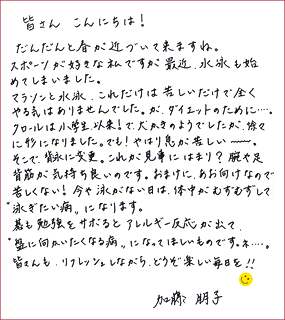 皆さん こんにちは！
だんだんと春が近づいて来ますね。
スポーツが好きな私ですが最近、水泳も始
めてしまいました。
マラソンと水泳、これだけは苦しいだけで全く
やる気はありませんでした。が、ダイエットのために…。
クロールは小学生以来！で、犬かきのようでしたが、徐々
に形になりました。でも！やはり息が苦しい〜〜。
そこで、背泳に変更。これが見事にはまり？腕や足
背筋が気持ち良いのです。おまけに、あお向けなので
苦しくない！今や泳がない日は、体中がむずむずして
"泳ぎたい病"になります。
碁も勉強をサボるとアレルギー反応が出て、
"盤に向かいたくなる病"になってほしいものです。ネ…。
皆さんも、リフレッシュしながら、どうぞ楽しい毎日を!!
加藤 朋子